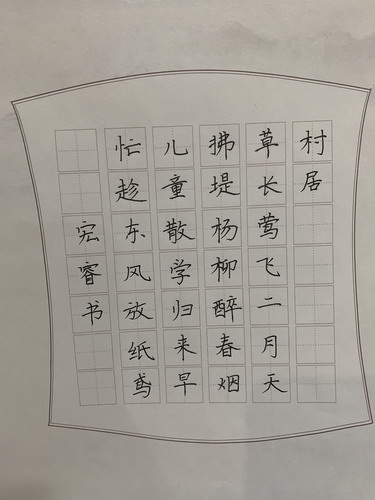 村居
草长莺飞二月天
拂堤杨柳醉春烟
儿童散学归来早
忙趁东风放纸鸢
宏睿书